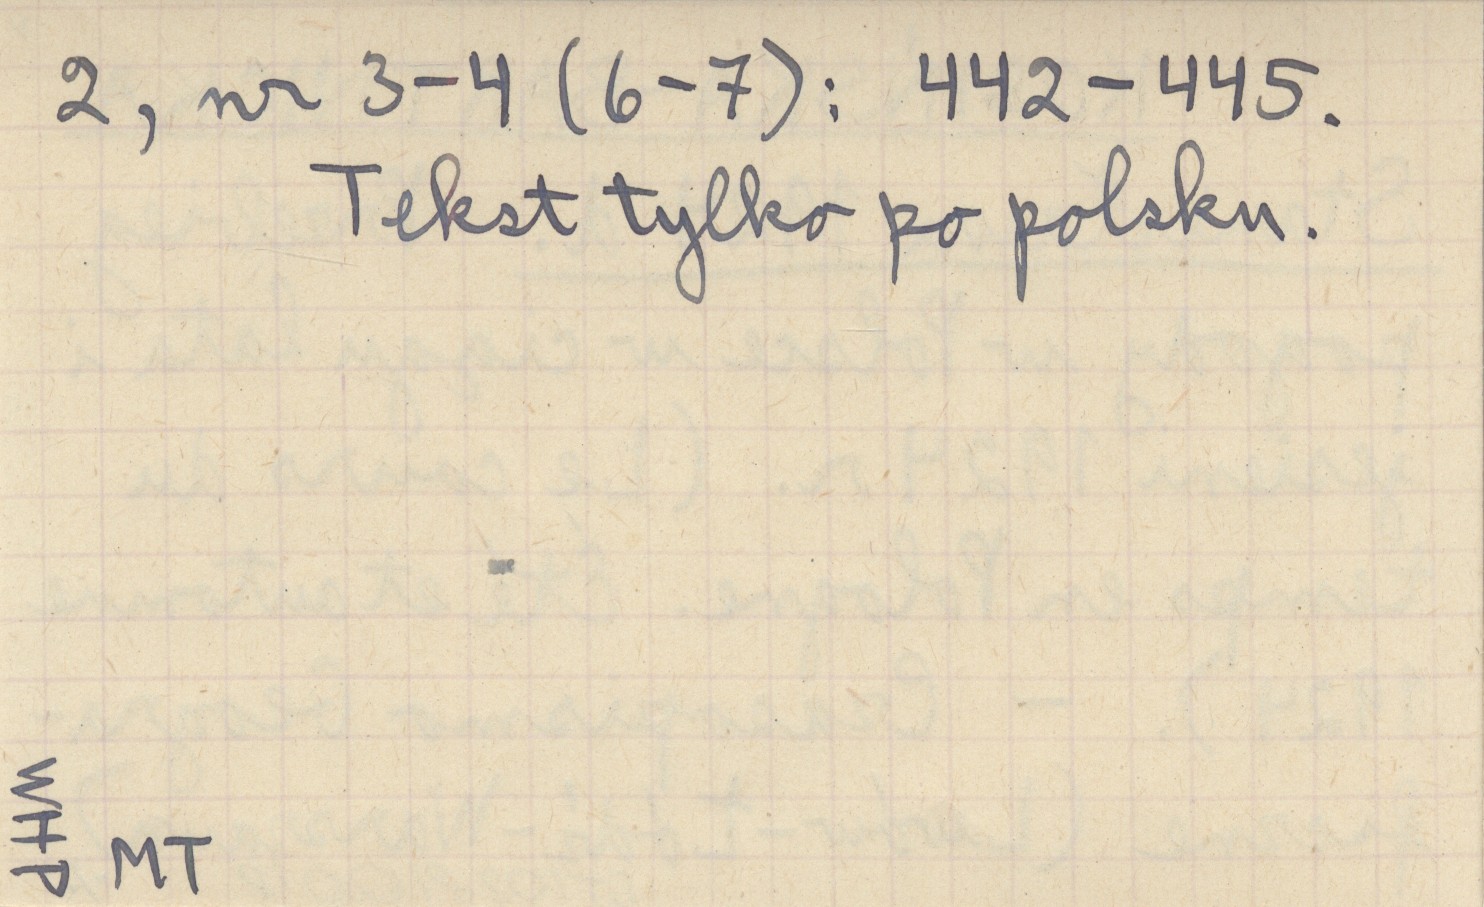 2, nr 3-4 (6-7): 442-445.
Tekst tylko po polsku.
WHP
MT